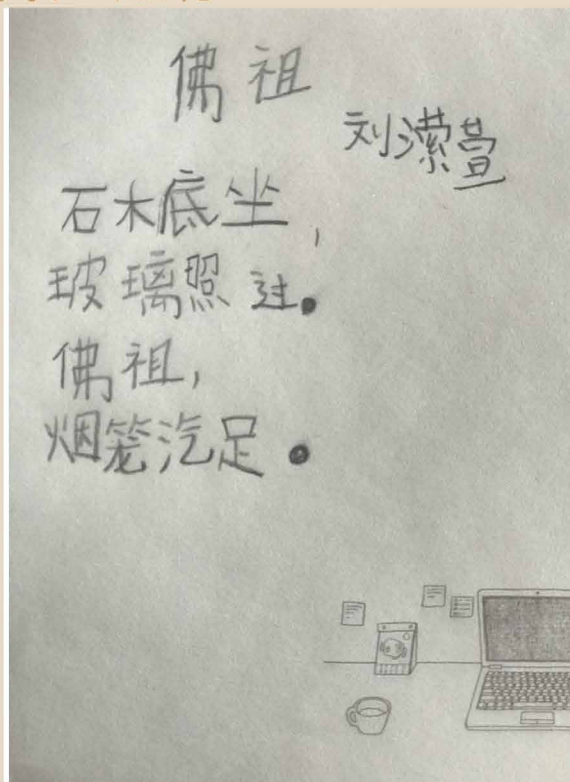 佛祖
刘潆萱
石木底坐,
玻璃照过。
佛祖,
烟笼汽足。